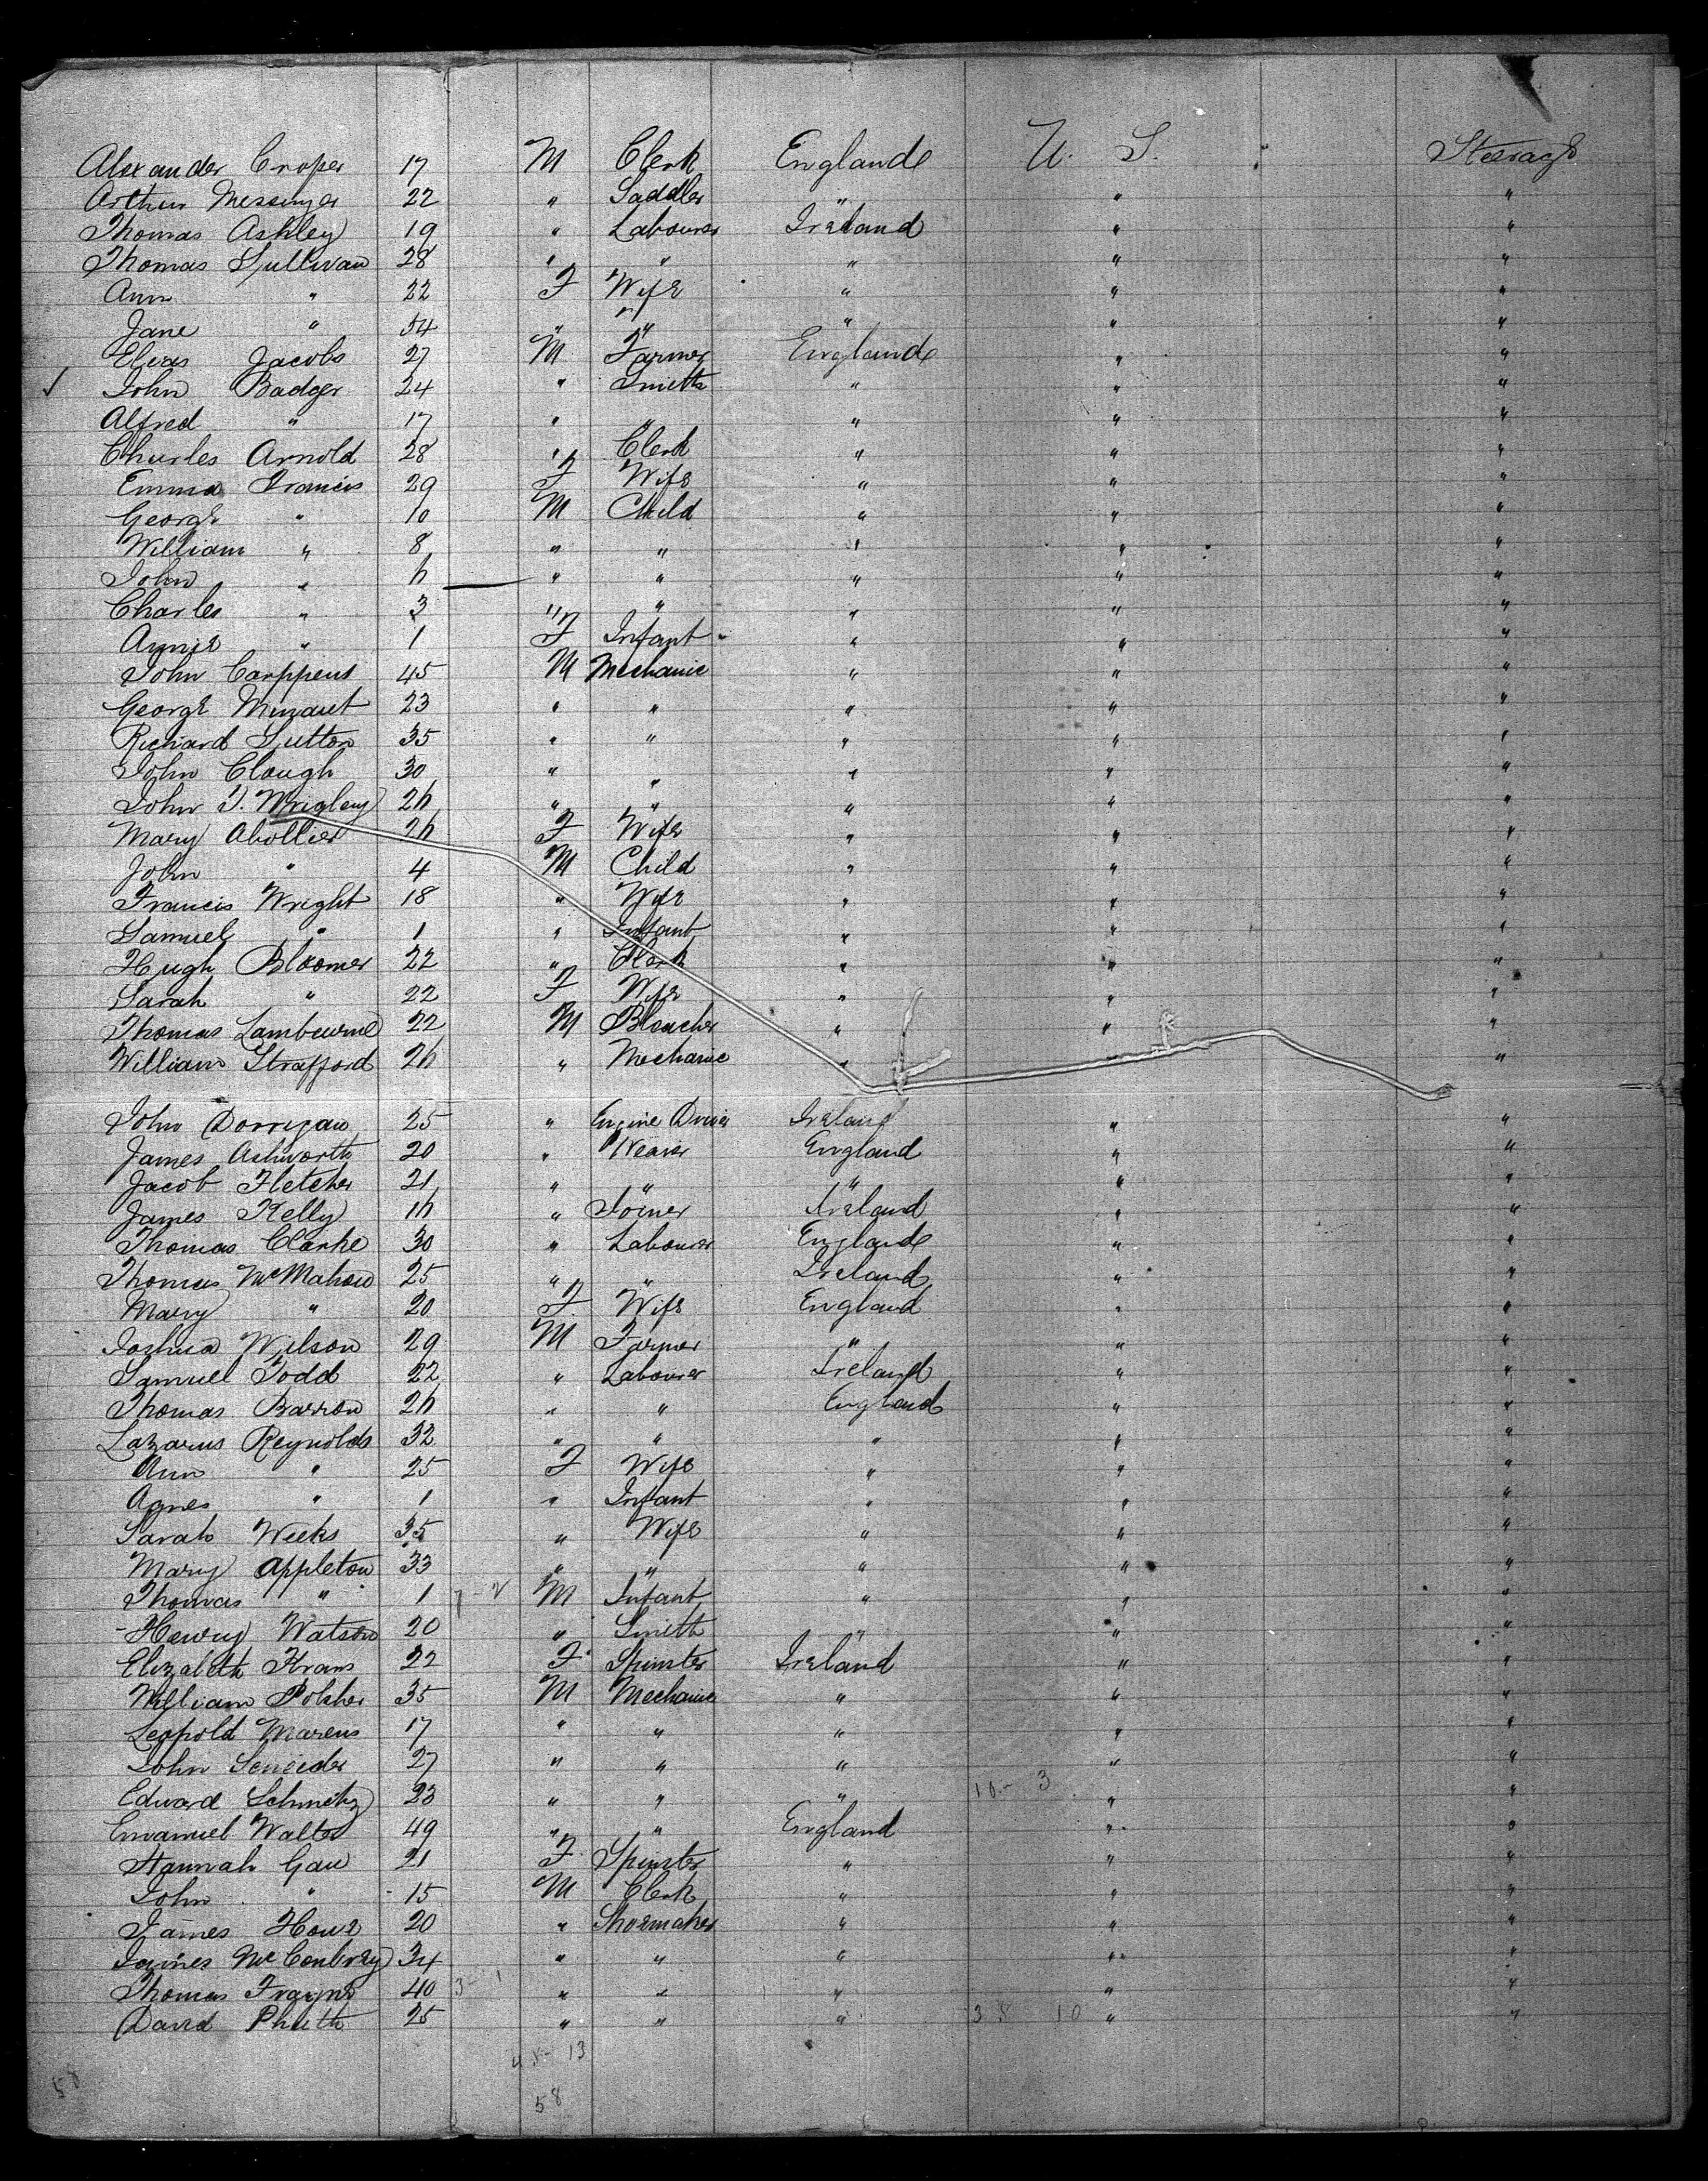 Alexander Croper 17 M Clerk Englande U. S. Steerage
Arthur Messinger 22 " Saddler " " "
Thomas Ashley 19 " Labourer Ireland " "
Thomas Sullivan 28 " " " " "
Ann " 22 F Wife " " "
Jane " 54 " " " " "
Elias Jacobs 27 M Farmer Englande " "
✓ John Badger 24 " Smith " " "
Alfred " 17 " " " " "
Charles Arnold 28 " Clerk " " "
Emma Francis 29 F Wife " " "
George " 10 M Child " " "
William " 8 " " " " "
John " 6 " " " " "
Charles " 3 " " " " "
Annie " 1 F Infant " " "
John Carppens 45 M Mechanic " " "
George Minaret 23 " " " " "
Richard Sutton 35 " " " " "
John Clough 30 " " " " "
John D. Wrigley 26 " " " " "
Mary Abollier 26 F Wife " " "
John " 4 M Child " " "
Francis Wright 18 " Wife " " "
Samuel " 1 " Infant " " "
Hugh Bloomer 22 " Clerk " " "
Sarah " 22 F Wife " " "
Thomas Lambourne 22 M Bleacher " " "
William Strafford 26 " Mechanic " " "
John Dorrigan 25 " Engine Driver Ireland " "
James Ashworth 20 " Weaver England " "
Jacob Fletcher 21 " " " " "
James Kelly 16 " Joiner Ireland " "
Thomas Clarke 30 " Labourer Englande " "
Thomas McMahon 25 " " Ireland " "
Mary " 20 F Wife England " "
Joshua Wilson 29 M Farmer " " "
Samuel Todd 22 " Labourer Ireland " "
Thomas Barron 26 " " England " "
Lazarus Reynolds 32 " " " " "
Ann " 25 F Wife " " "
Agnes " 1 " Infant " " "
Sarah Weeks 35 " Wife " " "
Mary Appleton 33 " " " " "
Thomas " 1 M Infant " " "
Henry Watson 20 " Smith " " "
Elizabeth Krans 22 F Spinster Ireland " "
William Polsher 35 M Mechanic " " "
Leopold Marcus 17 " " " " "
John Scneider 27 " " " " "
Edward Schmetz 23 " " " 10-3 " "
Emanuel Walter 49 " " England " "
Hannah Gau 21 F Spinster " " "
John " 15 M Clerk " " "
James Howe 20 " Shoemaker " " "
James McConbrey 34 " " " " "
Thomas Frayne 40 3-1 " " " " "
David Phuth 25 " " " 38 10 " "
45-13
58
58